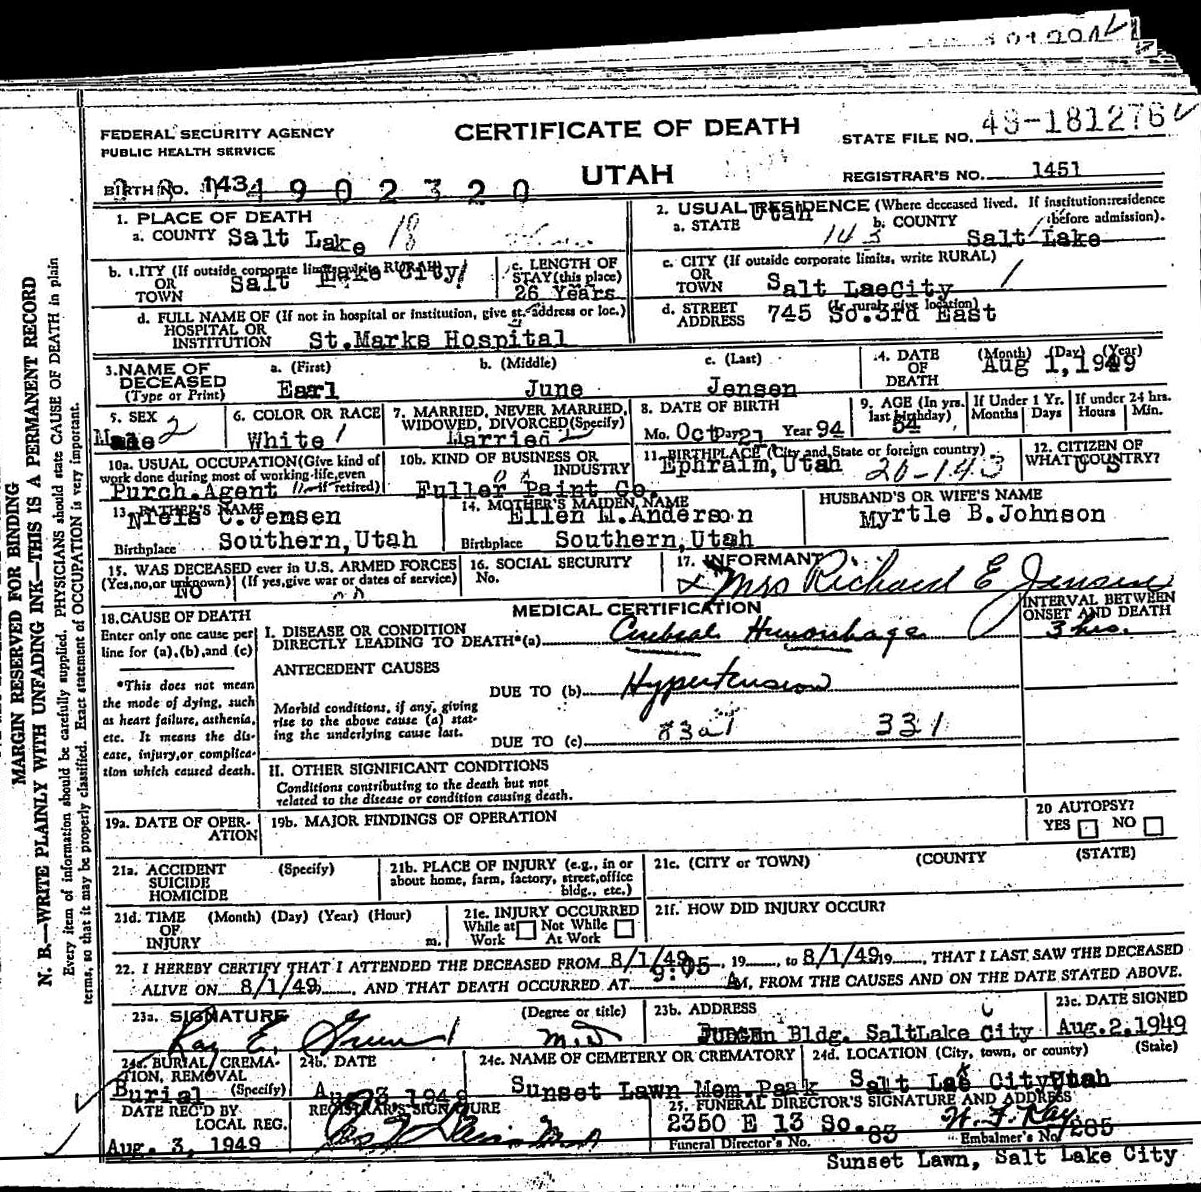 FEDERAL SECURITY AGENCY
PUBLIC HEALTH SERVICE
CERTIFICATE OF DEATH
UTAH
STATE FILE NO. 49-181276
REGISTRAR'S NO. 1451
BIRTH NO. 1434902320
1. PLACE OF DEATH
a. COUNTY Salt Lake 18
2. USUAL RESIDENCE (Where deceased lived. If institution: residence before admission).
a. STATE Utah
b. COUNTY Salt Lake
143
b. CITY (If outside corporate limits, write RURAL) OR TOWN Salt Lake City
c. LENGTH OF STAY (this place) 26 Years
c. CITY (If outside corporate limits, write RURAL) OR TOWN Salt LaeCity
d. FULL NAME OF (If not in hospital or institution, give st. address or loc.) HOSPITAL OR INSTITUTION St.Marks Hospital
d. STREET ADDRESS (If rural, give location) 745 So.3rd East
3. NAME OF DECEASED (Type or Print)
a. (First) Earl
b. (Middle) June
c. (Last) Jensen
4. DATE OF DEATH (Month) (Day) (Year) Aug 1,1949
5. SEX Male 2
6. COLOR OR RACE White 1
7. MARRIED, NEVER MARRIED, WIDOWED, DIVORCED (Specify) Married 2
8. DATE OF BIRTH Mo. Oct Day 21 Year 94
9. AGE (In yrs. last birthday) 54
If Under 1 Yr. Months Days
If under 24 hrs. Hours Min.
10a. USUAL OCCUPATION (Give kind of work done during most of working life, even if retired) Purch.Agent
10b. KIND OF BUSINESS OR INDUSTRY Fuller Paint Co.
11. BIRTHPLACE (City and State or foreign country) Ephraim,Utah 20-143
12. CITIZEN OF WHAT COUNTRY? U S
13. FATHER'S NAME Niels C.Jensen
Birthplace Southern,Utah
14. MOTHER'S MAIDEN NAME Ellen M.Anderson
Birthplace Southern,Utah
HUSBAND'S OR WIFE'S NAME
Myrtle B.Johnson
15. WAS DECEASED ever in U.S. ARMED FORCES
(Yes, no, or unknown) (If yes, give war or dates of service)
NO
16. SOCIAL SECURITY No.
17. INFORMANT
Mrs Richard E Jensen
18. CAUSE OF DEATH
Enter only one cause per line for (a), (b), and (c)
*This does not mean the mode of dying, such as heart failure, asthenia, etc. It means the disease, injury, or complication which caused death.
MEDICAL CERTIFICATION
INTERVAL BETWEEN ONSET AND DEATH
I. DISEASE OR CONDITION DIRECTLY LEADING TO DEATH*(a) Cerebral Hemorrhage
3 hrs.
ANTECEDENT CAUSES
DUE TO (b) Hypertension
Morbid conditions, if any, giving rise to the above cause (a) stating the underlying cause last.
DUE TO (c) 83a1 331
II. OTHER SIGNIFICANT CONDITIONS
Conditions contributing to the death but not related to the disease or condition causing death.
19a. DATE OF OPERATION
19b. MAJOR FINDINGS OF OPERATION
20 AUTOPSY?
YES NO
21a. ACCIDENT SUICIDE HOMICIDE (Specify)
21b. PLACE OF INJURY (e.g., in or about home, farm, factory, street, office bldg., etc.)
21c. (CITY or TOWN) (COUNTY) (STATE)
21d. TIME OF INJURY (Month) (Day) (Year) (Hour) m.
21e. INJURY OCCURRED
While at Work Not While At Work
21f. HOW DID INJURY OCCUR?
22. I HEREBY CERTIFY THAT I ATTENDED THE DECEASED FROM 8/1/49, 19, to 8/1/49 19, THAT I LAST SAW THE DECEASED
ALIVE ON 8/1/49, AND THAT DEATH OCCURRED AT 9:05 AM, FROM THE CAUSES AND ON THE DATE STATED ABOVE.
23a. SIGNATURE (Degree or title)
Ray E. M.D
23b. ADDRESS
JUDGE Bldg. SaltLake City
23c. DATE SIGNED
Aug.2.1949
24a. BURIAL, CREMATION, REMOVAL (Specify) Burial
24b. DATE Aug 3, 1949
24c. NAME OF CEMETERY OR CREMATORY
Sunset Lawn Mem.Paak
24d. LOCATION (City, town, or county) (State)
Salt Lak City Utah
DATE REC'D BY LOCAL REG.
Aug. 3, 1949
REGISTRAR'S SIGNATURE
25. FUNERAL DIRECTOR'S SIGNATURE AND ADDRESS
2350 E 13 So.
Funeral Director's No. 83
Embalmer's No. 285
Sunset Lawn, Salt Lake City
MARGIN RESERVED FOR BINDING
N. B.—WRITE PLAINLY WITH UNFADING INK—THIS IS A PERMANENT RECORD
Every item of information should be carefully supplied. PHYSICIANS should state CAUSE OF DEATH in plain
terms, so that it may be properly classified. Exact statement of OCCUPATION is very important.